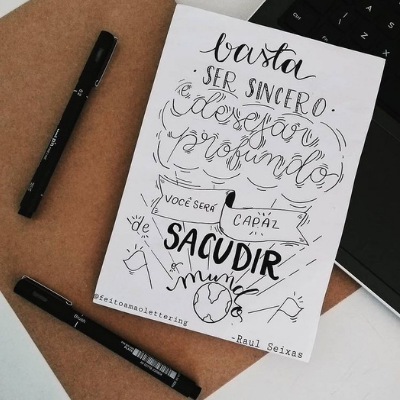 basta
· SER SINCERO ·
e desejar
profundo
VOCÊ SERÁ CAPAZ
de SACUDIR
o mundo
@feitoamaolettering
-Raul Seixas